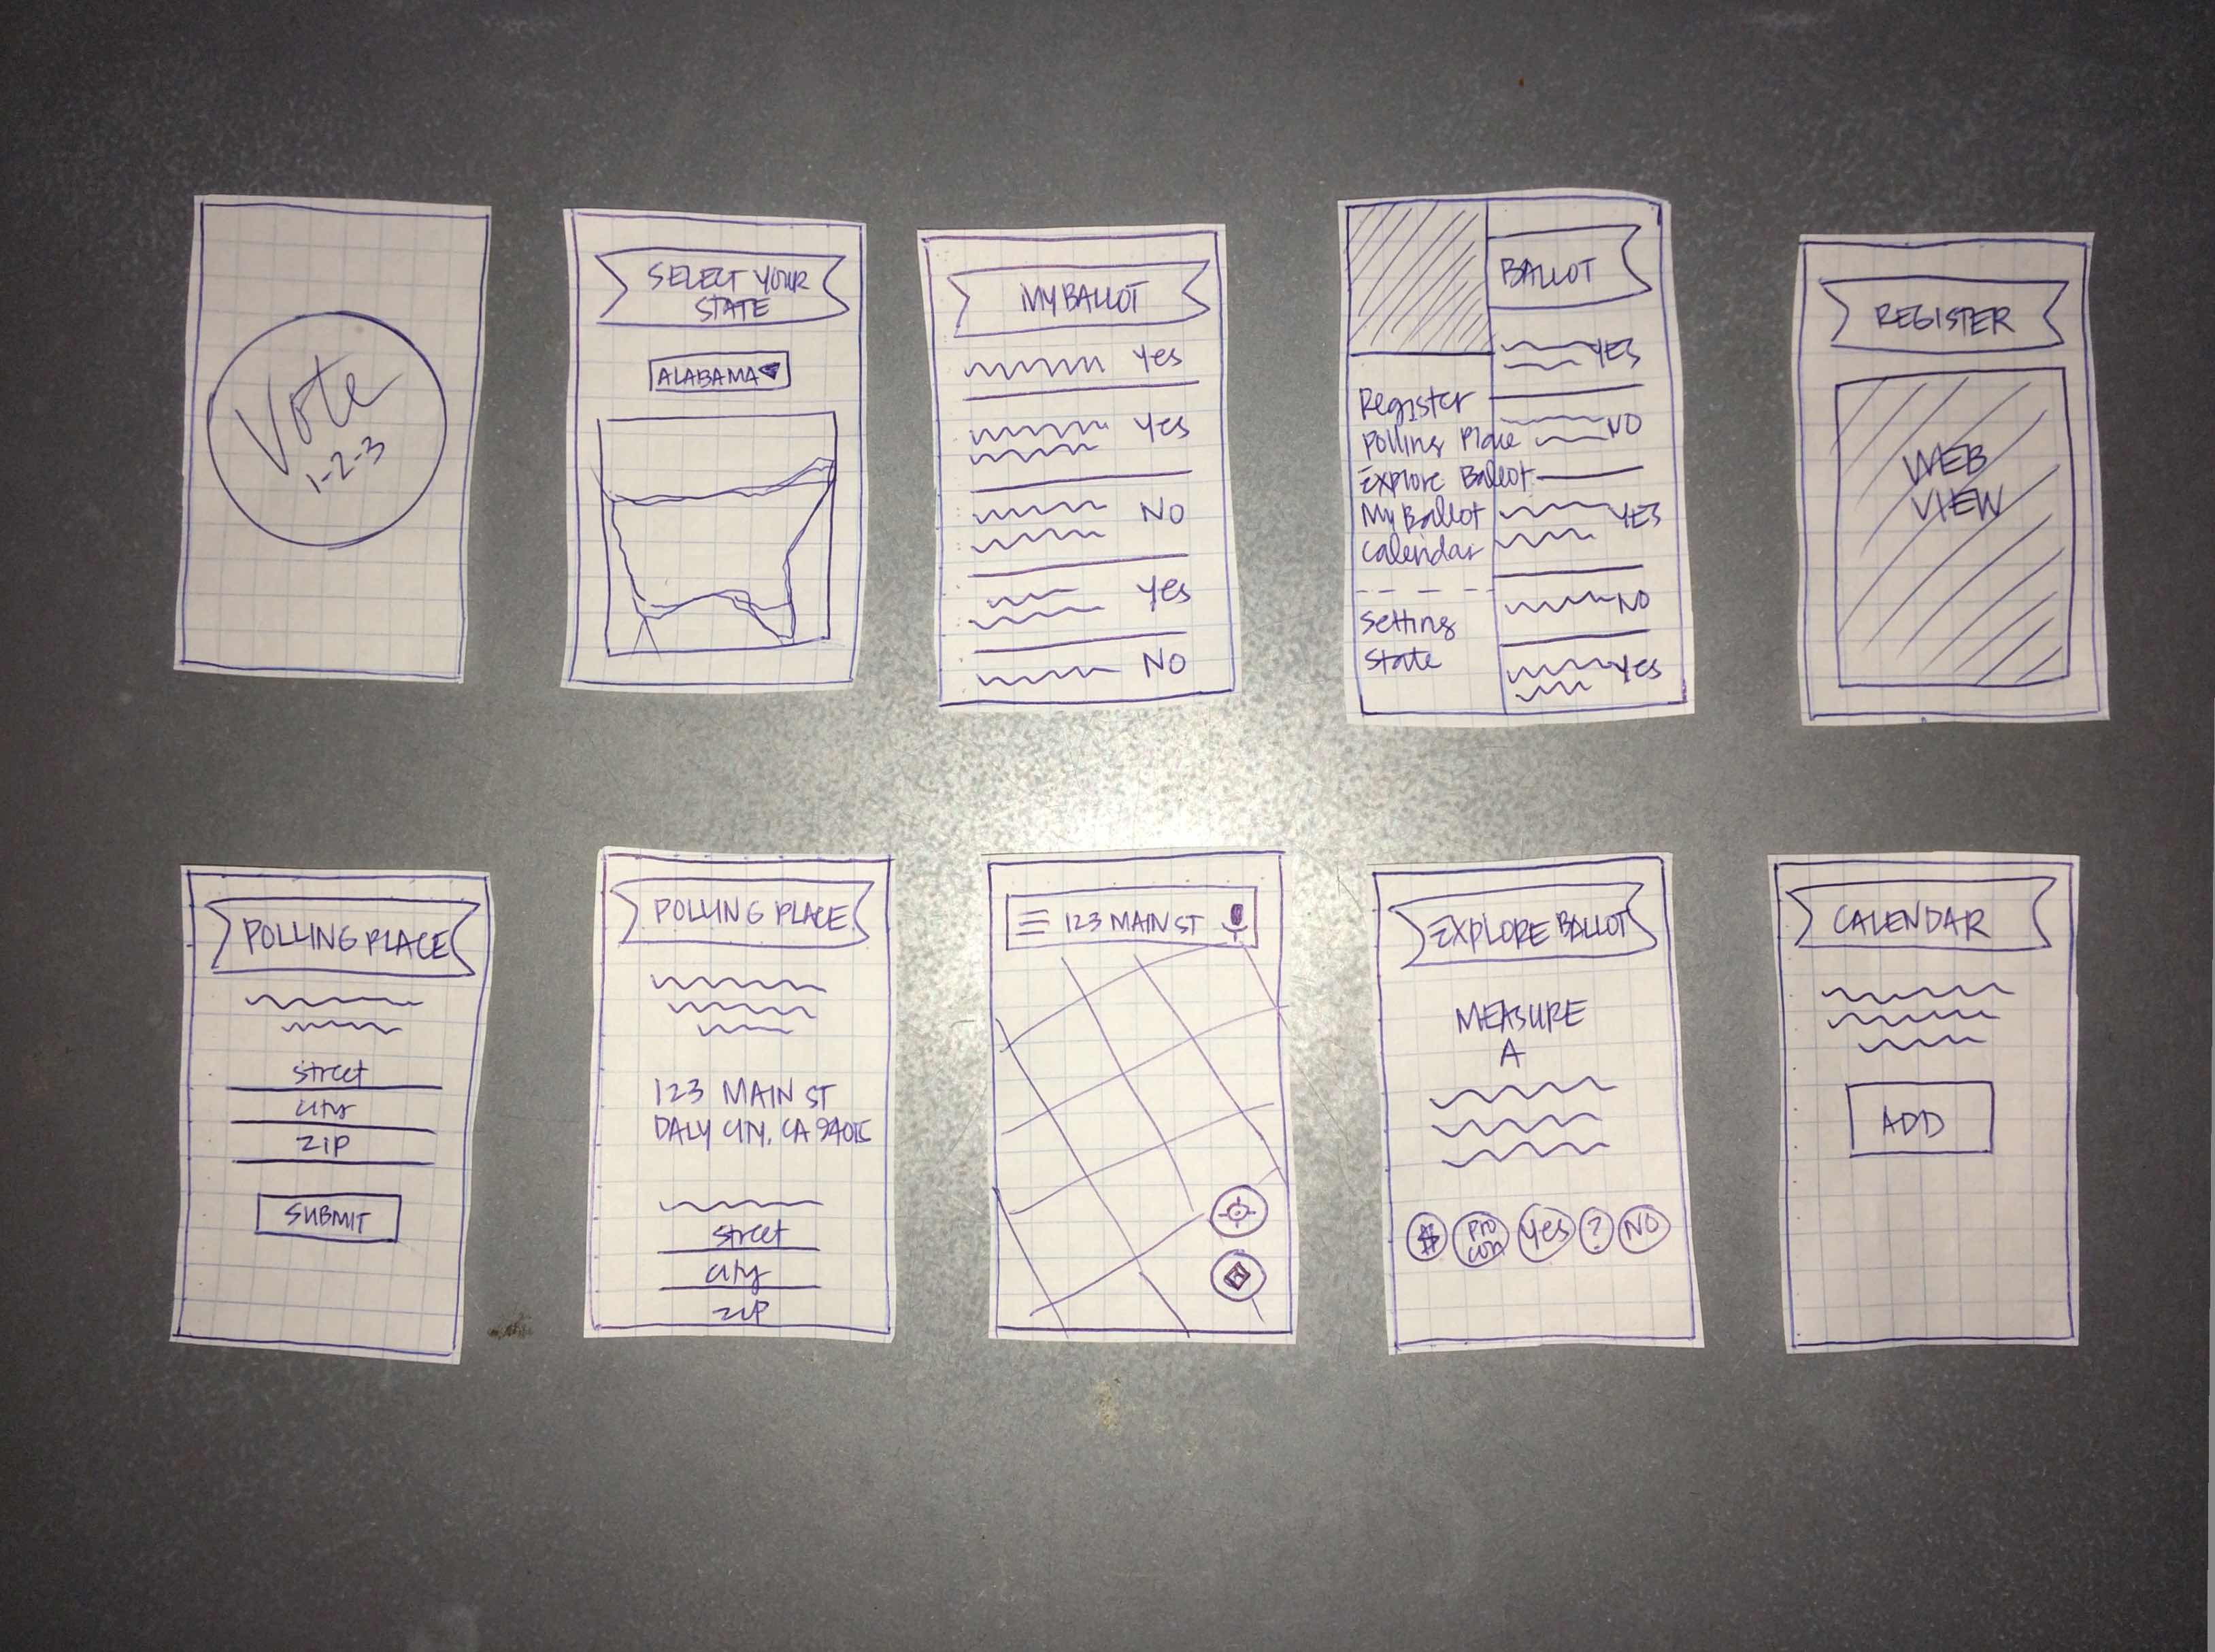 Vote
1-2-3
SELECT YOUR
STATE
ALABAMA
MY BALLOT
Yes
Yes
NO
Yes
NO
BALLOT
YES
NO
YES
NO
Yes
Register
Polling Place
Explore Ballot
My Ballot
Calendar
Setting
State
REGISTER
WEB
VIEW
POLLING PLACE
street
city
ZIP
SUBMIT
POLLING PLACE
123 MAIN ST
DALY CITY, CA 94015
street
city
ZIP
123 MAIN ST
EXPLORE BALLOT
MEASURE
A
$ Pro Yes ? NO
con
CALENDAR
ADD